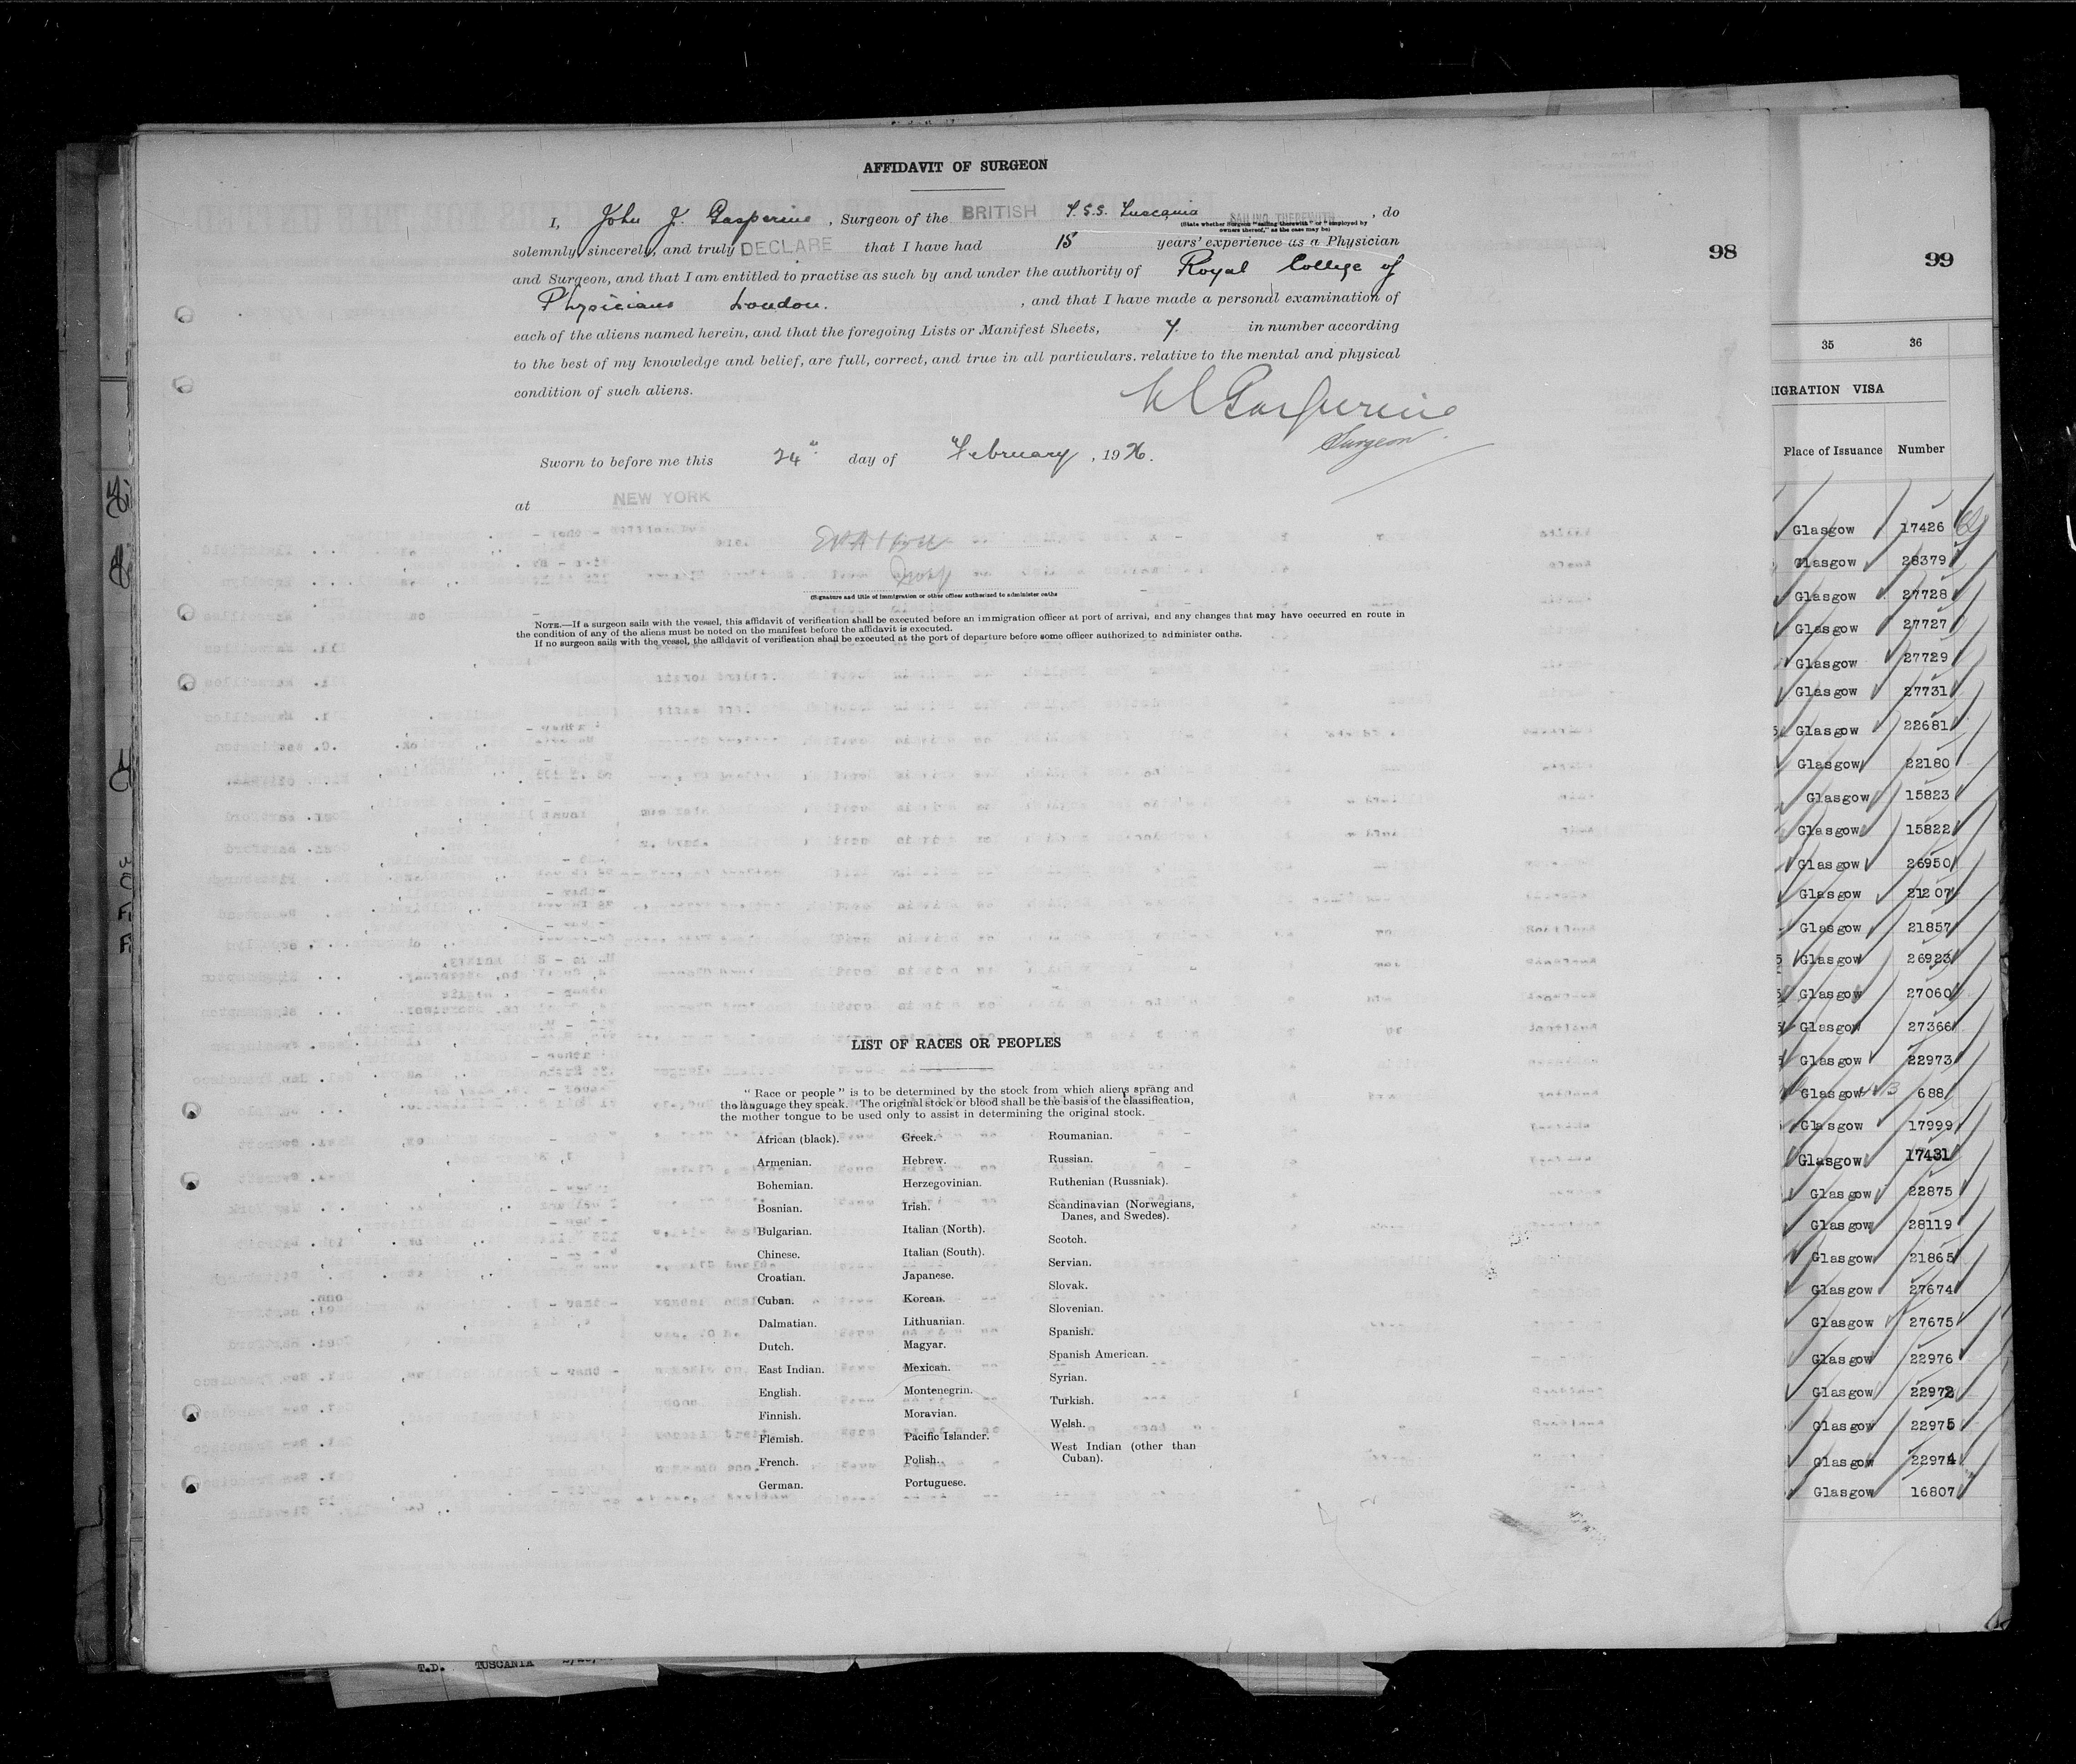 AFFIDAVIT OF SURGEON
I, John J. Gasperine, Surgeon of the BRITISH T.S.S. Tuscania SAILING THEREWITH, do
(State whether Surgeon "sailing therewith" or "employed by
owners thereof," as the case may be)
solemnly, sincerely, and truly DECLARE that I have had 15 years' experience as a Physician
and Surgeon, and that I am entitled to practise as such by and under the authority of Royal College of
Physicians London. , and that I have made a personal examination of
each of the aliens named herein, and that the foregoing Lists or Manifest Sheets, 7. in number according
to the best of my knowledge and belief, are full, correct, and true in all particulars. relative to the mental and physical
condition of such aliens.
Gasperine
Surgeon.
Sworn to before me this 24" day of February, 1926.
at NEW YORK
(Signature and title of immigration or other officer authorized to administer oaths
NOTE.—If a surgeon sails with the vessel, this affidavit of verification shall be executed before an immigration officer at port of arrival, and any changes that may have occurred en route in
the condition of any of the aliens must be noted on the manifest before the affidavit is executed.
If no surgeon sails with the vessel, the affidavit of verification shall be executed at the port of departure before some officer authorized to administer oaths.
LIST OF RACES OR PEOPLES
"Race or people" is to be determined by the stock from which aliens sprang and
the language they speak. The original stock or blood shall be the basis of the classification,
the mother tongue to be used only to assist in determining the original stock.
African (black).
Armenian.
Bohemian.
Bosnian.
Bulgarian.
Chinese.
Croatian.
Cuban.
Dalmatian.
Dutch.
East Indian.
English.
Finnish.
Flemish.
French.
German.
Greek.
Hebrew.
Herzegovinian.
Irish.
Italian (North).
Italian (South).
Japanese.
Korean.
Lithuanian.
Magyar.
Mexican.
Montenegrin.
Moravian.
Pacific Islander.
Polish.
Portuguese.
Roumanian.
Russian.
Ruthenian (Russniak).
Scandinavian (Norwegians,
Danes, and Swedes).
Scotch.
Servian.
Slovak.
Slovenian.
Spanish.
Spanish American.
Syrian.
Turkish.
Welsh.
West Indian (other than
Cuban).
98
99
35 36
IGRATION VISA
Place of Issuance Number
Glasgow 17426
Glasgow 28379
Glasgow 27728
Glasgow 27727
Glasgow 27729
Glasgow 27731
Glasgow 22681
Glasgow 22180
Glasgow 15823
Glasgow 15822
Glasgow 26950
Glasgow 21207
Glasgow 21857
Glasgow 26923
Glasgow 27060
Glasgow 27366
Glasgow 22973
Glasgow 688
Glasgow 17999
Glasgow 17431
Glasgow 22875
Glasgow 28119
Glasgow 21865
Glasgow 27674
Glasgow 27675
Glasgow 22976
Glasgow 22972
Glasgow 22975
Glasgow 22974
Glasgow 16807
T.D. TUSCANIA